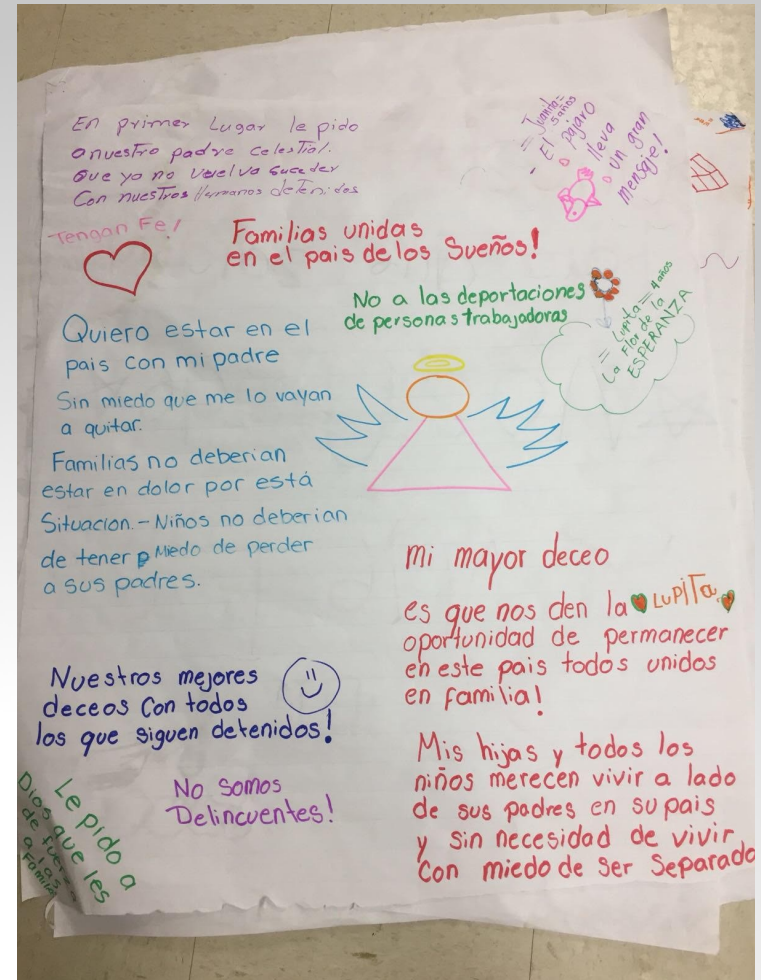 En primer Lugar le pido
a nuestro padre celestial.
Que ya no vuelva suceder
Con nuestros Hermanos detenidos
= Juanita =
5 años
· El pajaro
lleva
un gran
mensaje!
Tengan Fe!
Familias unidas
en el pais de los Sueños!
No a las deportaciones
de personas trabajadoras
= Lupita = 4 años
La Flor de la
ESPERANZA
Quiero estar en el
pais con mi padre
Sin miedo que me lo vayan
a quitar.
Familias no deberian
estar en dolor por está
Situacion. - Niños no deberian
de tener Miedo de perder
a sus padres.
mi mayor deceo
es que nos den la LUPITA
oportunidad de permanecer
en este pais todos unidos
en familia!
Nuestros mejores
deceos Con todos
los que siguen detenidos!
Mis hijas y todos los
niños merecen vivir a lado
de sus padres en su pais
y sin necesidad de vivir
Con miedo de ser Separado
No somos
Delincuentes!
Le pido a
Dios que les
de
a las
Familias